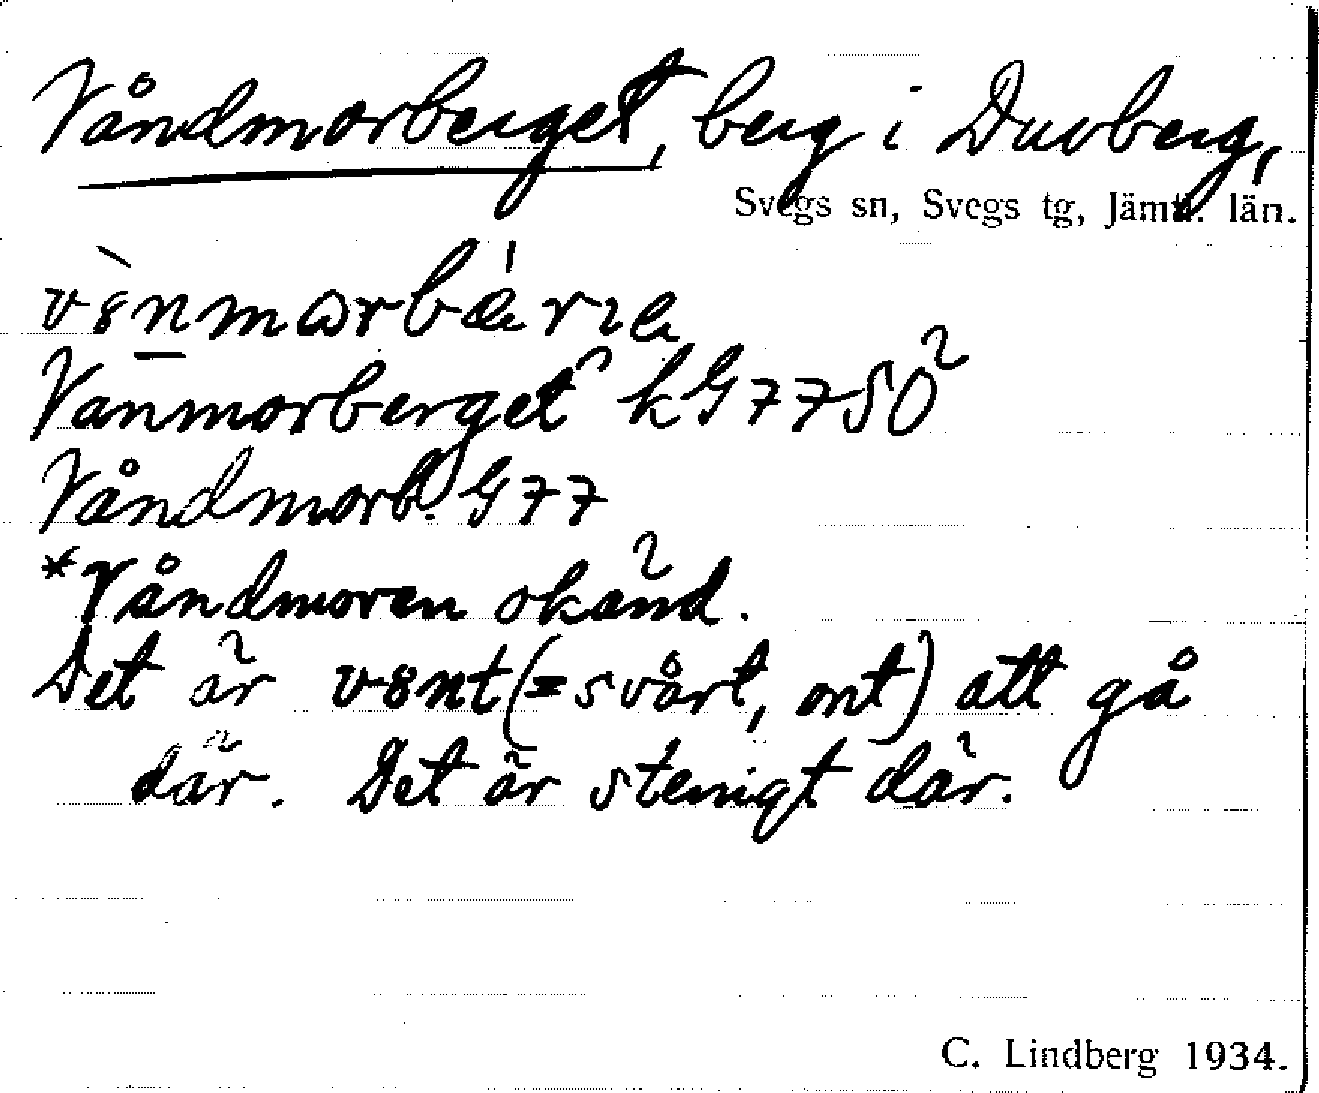 Våndmorberget, berg i Duvberg,
Svegs sn, Svegs tg, Jämtl. län.
Vanmorberget kG77SÖ
Våndmorb. G77
*Våndmoren okänd.
Det är v8nt (= svårt, ont) att gå
där. Det är stenigt där.
C. Lindberg 1934.